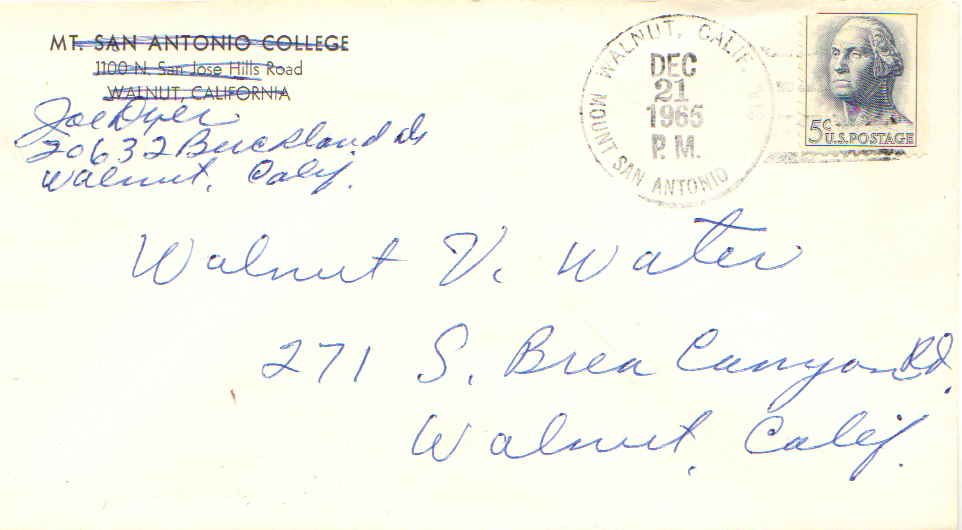 MT. SAN ANTONIO COLLEGE
1100 N. San Jose Hills Road
WALNUT, CALIFORNIA
Joe Dyer
20632 Buckland Dr
Walnut, Calif.
WALNUT, CALIF.
DEC
21
1965
P.M.
MOUNT SAN ANTONIO
5c U.S. POSTAGE
Walnut V. Water
271 S. Brea Canyon Rd.
Walnut, Calif.